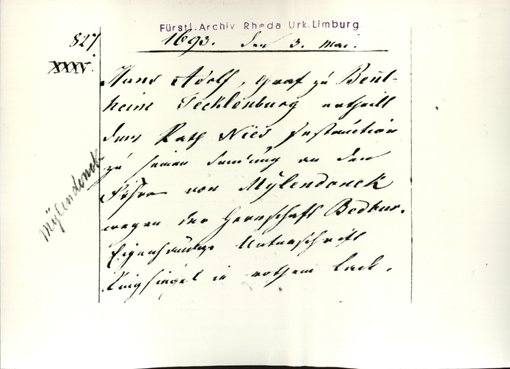 Fürstl. Archiv Rheda Urk. Limburg
827
1693. den 3. Mai.
XXXV.
Hans Adolf, Graf zu Bent-
heim Tecklenburg ertheilt
dem Rath Nies Instruction
zu seiner Sendung an den
von Mylendonck
wegen der Herrschaft Bedbur.
Eigenhändige Unterschrift
Ringsiegel in rothem Lack.
Mÿlendonck